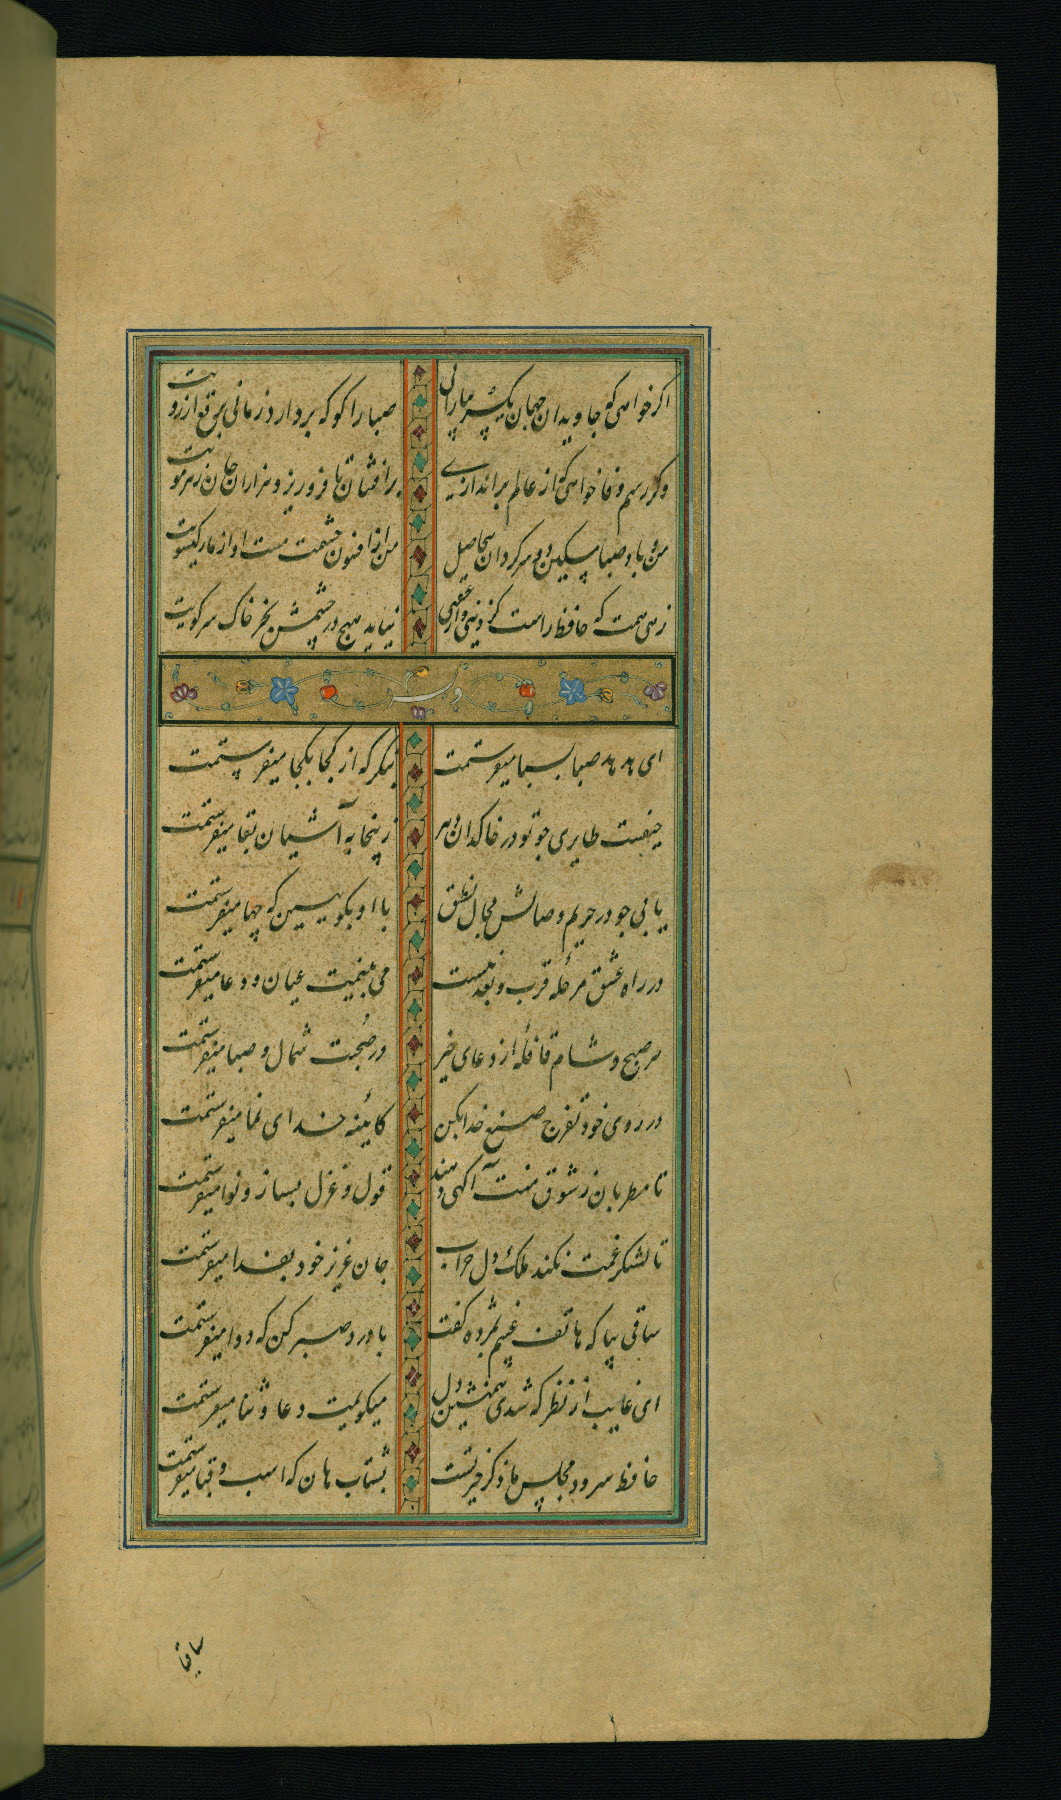 اگر خواهی که جاویدان جهان یکسر بیارائی صبا را کو که بردارد زمانی برقع از رویت
وگر رسم وفا خواهی که از عالم براندازی برافشان تا فرو ریزد هزاران جان ز هر مویت
من و باد صبا مسکین دو سرگردان بیحاصل من از افسون چشمت مست او از مار گیسویت
زهی همت که حافظ راست کز دنیی و از عقبی نیاید هیچ در چشمش بجز خاک سر کویت
وله
ای هدهد صبا بسبا میفرستمت بنگر که از کجا بکجا میفرستمت
حیفست طایری چو تو در خاکدان دهر زینجا به آشیان بقا میفرستمت
یابی چو در حریم وصالش مجال نطق با او بگو ببین که چها میفرستمت
در راه عشق مرحله قرب و بعد نیست می بینمت عیان و دعا میفرستمت
هر صبح و شام قافله از دعای خیر در صحبت شمال و صبا میفرستمت
در روی خود تفرج صنع خدا بکن کائینه خدای نما میفرستمت
تا مطربان ز شوق منت آگهی دهند قول و غزل بساز و نوا میفرستمت
تا لشکر غمت نکند ملک دل خراب جان عزیز خود بفدا میفرستمت
ساقی بیا که هاتف غیبم مژده گفت با درد صبر کن که دوا میفرستمت
ای غایب از نظر که شدی همنشین دل میگویمت دعا و ثنا میفرستمت
حافظ سرود مجلس ما ذکر خیر تست بشتاب هان که اسب و قبا میفرستمت
ساقیا